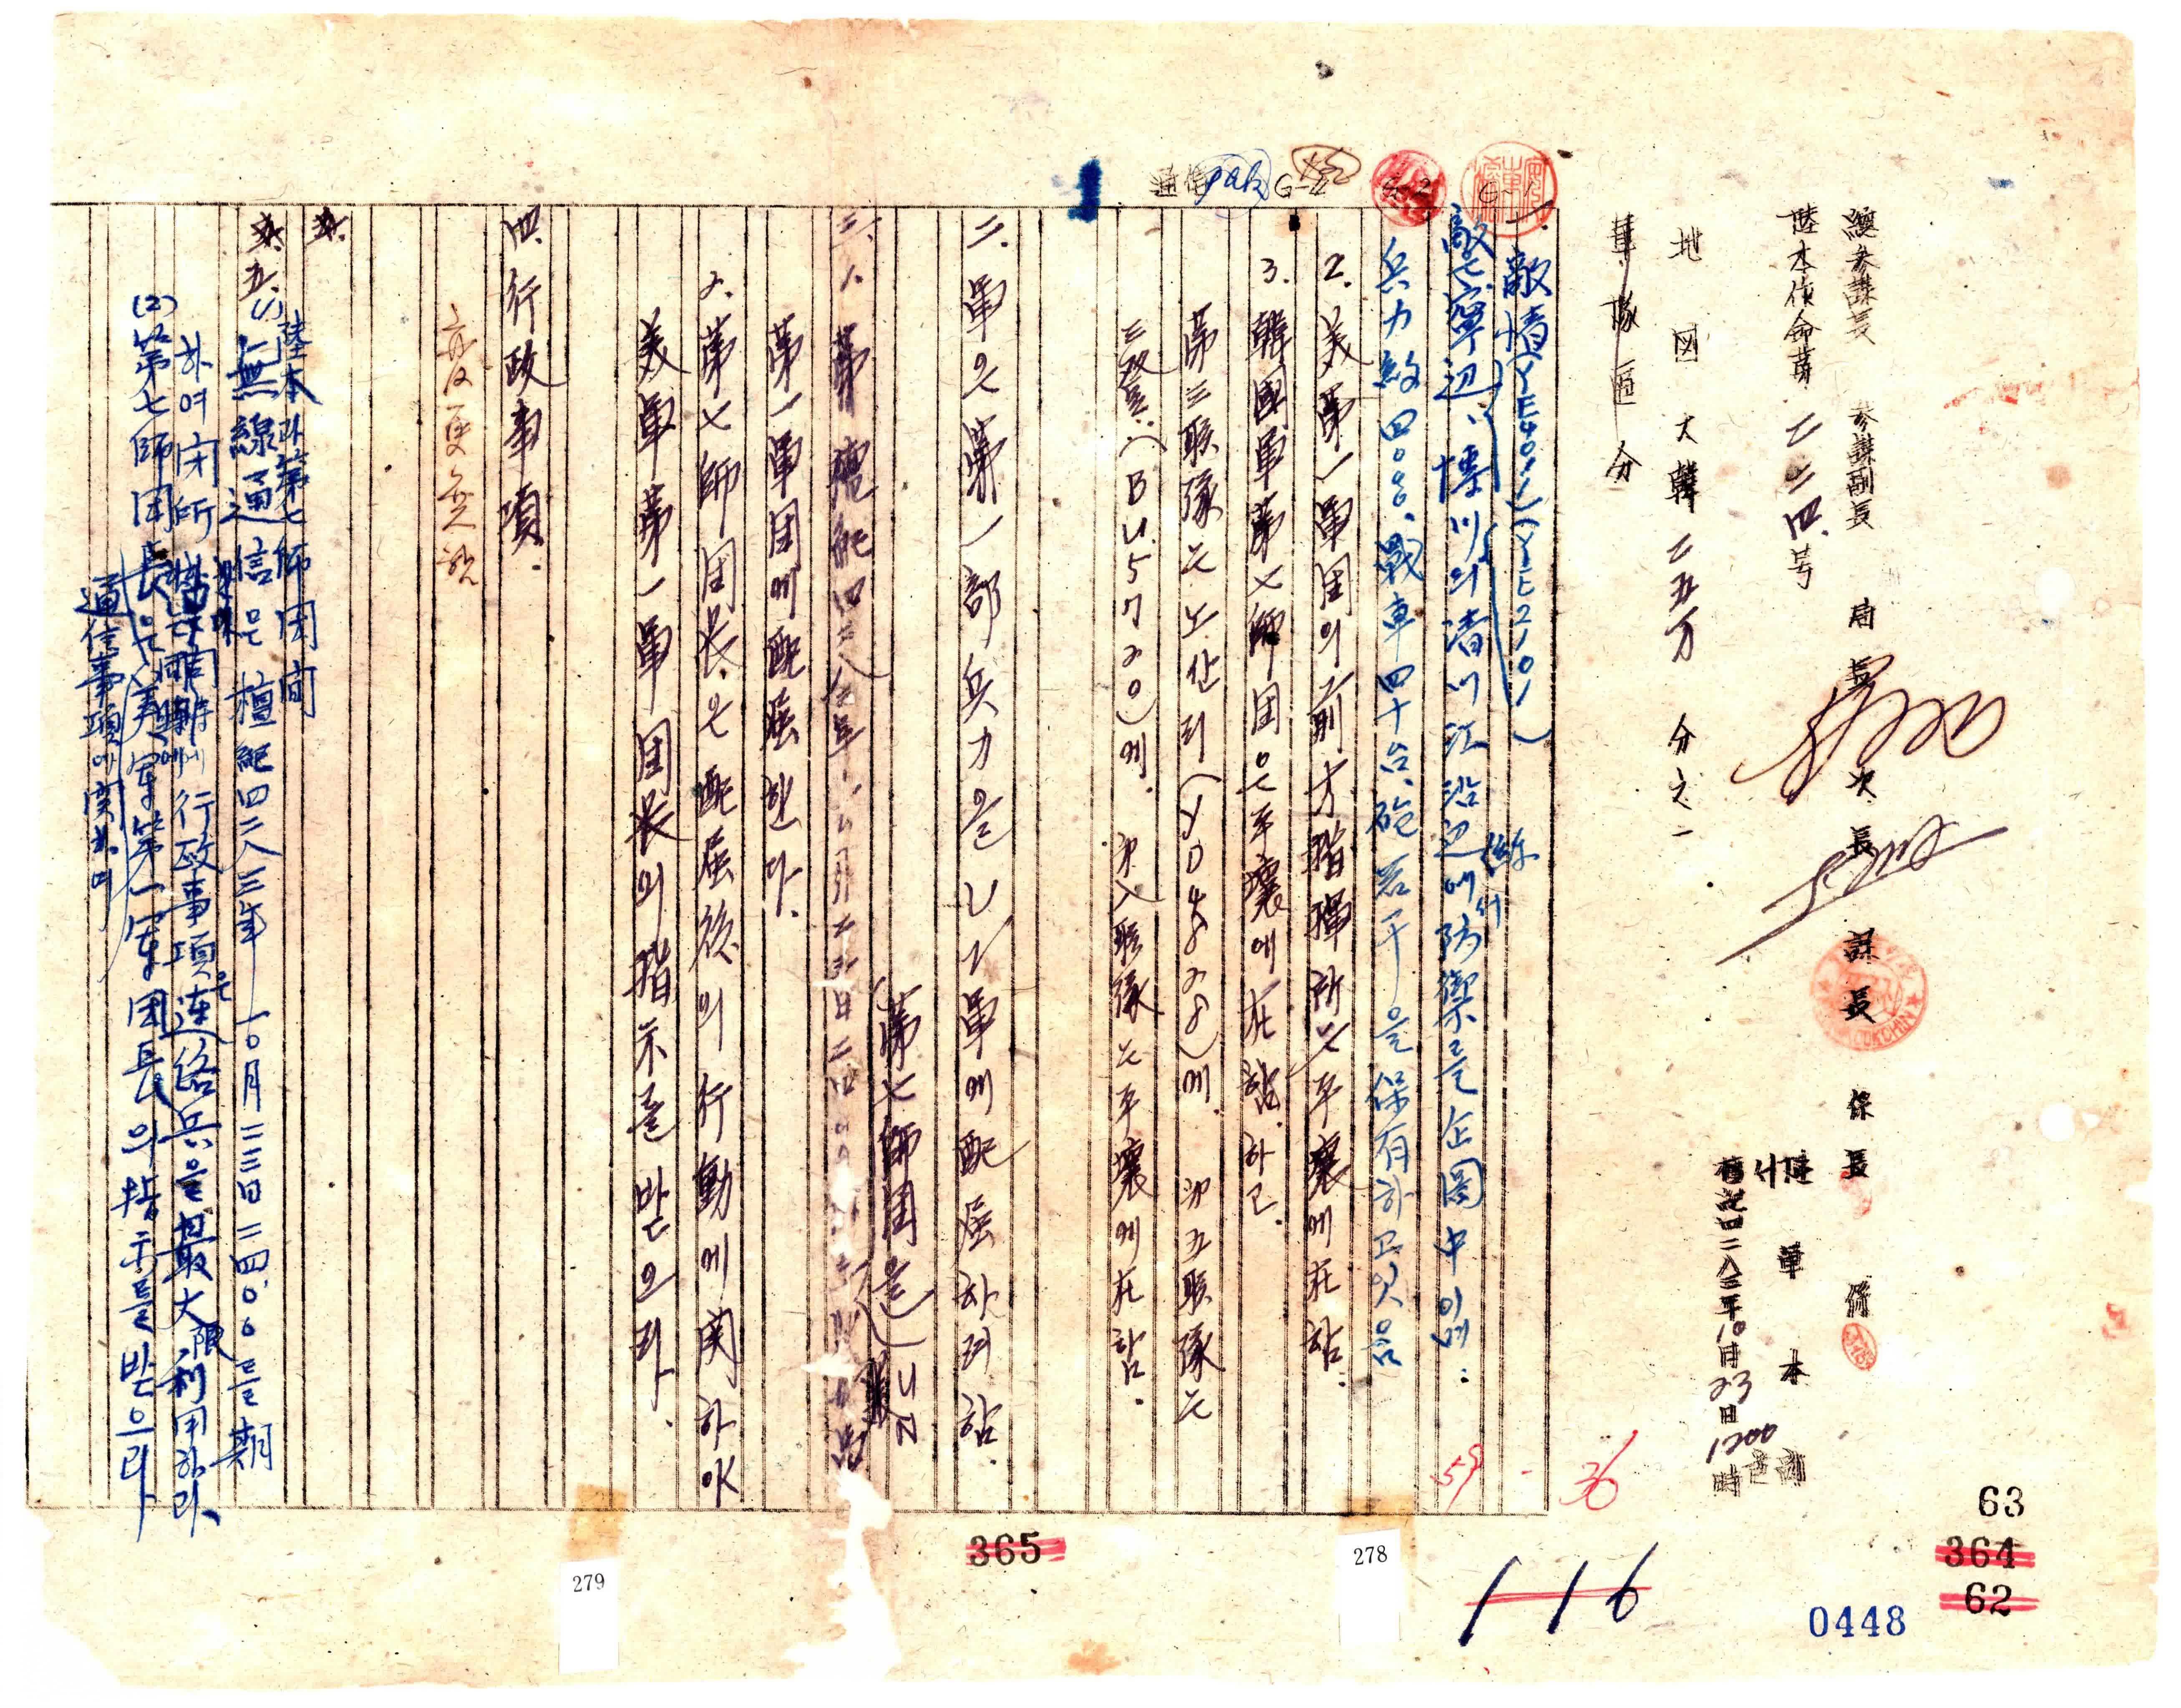 總參謀長 參謀副長 局長 次長 課長 係長 係
陸本作命第二二四号
地図大韓二五万分之一
軍隊區分
陸軍本部
서울
檀紀四二八三年10月23日1200時
通信 G-4 G-2 G-1
一. 敵情
敵은寧辺(YE4011)博川(YE2101)의清川江沿辺에서防禦를企圖中이며
兵力約四000、戰車四十台、砲若干을保有하고잇음
2. 美第一軍団의前方指揮所는平壤에在함.
3. 韓國軍第七師団은平壤에在하고.
第三聯隊는노산리(YD4828)에. 第五聯隊는
三登(BU5720)에. 第八聯隊는平壤에在함.
二. 軍은第一部兵力을UN軍에配屬하려함.
第七師団을 UN
三. 1. 第 檀紀四二八三年一0月二三日二四00
第一軍団에配屬한다.
2. 第七師団长은配屬後의行動에関하야
美軍第一軍団长의指示를받으라.
四. 行政事項.
五.
陸本과第七師団間
五. (1) 無線通信은檀紀四二八三年一0月二三日二四00를期
하여閉所함과同時에行政事項은連絡兵을最大限利用하라.
(2) 第七師団長은美軍第一軍団長의指示를받으라
通信事項에関하여
36
59
116
278
279
365
63
364
62
0448